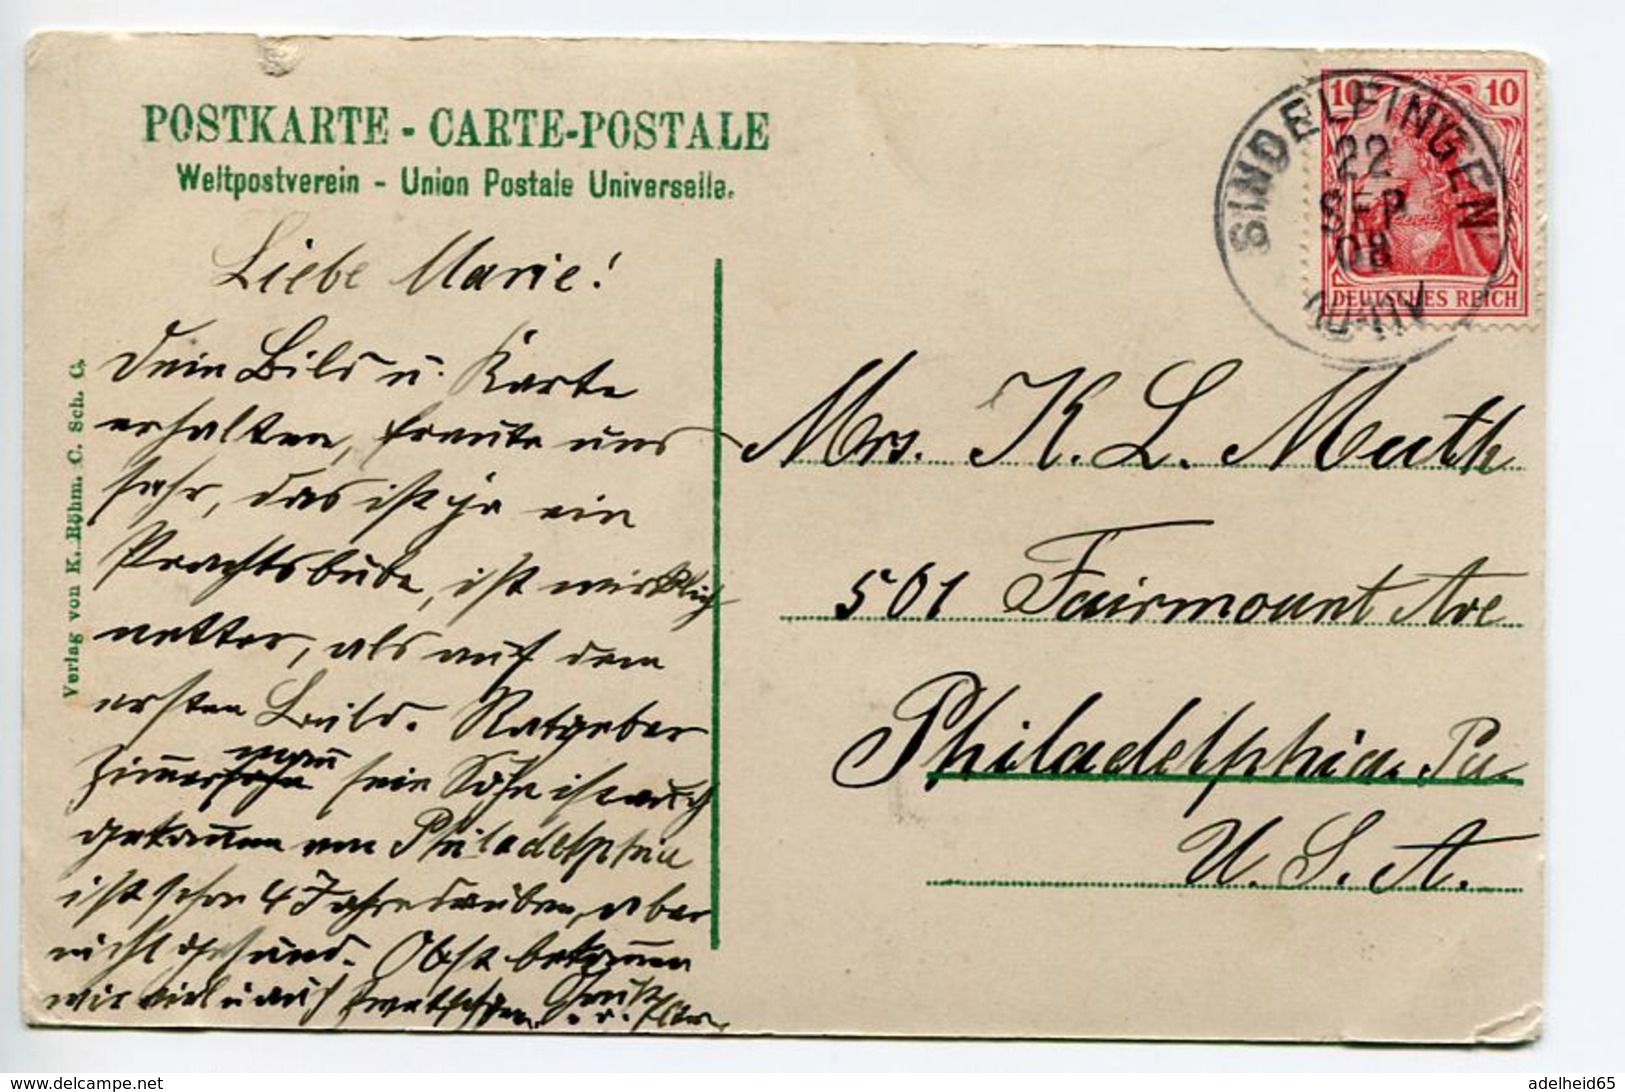 POSTKARTE - CARTE-POSTALE
Weltpostverein - Union Postale Universelle.
SINDELFINGEN
22
SEP
08
10 10
DEUTSCHES REICH
Verlag von K. Röhm. C. Sch. G.
Liebe Marie!
Dein Bild u. Karte
erhalten, freute uns
sehr, das ist ja ein
Prachtsbube, ist wirklich
netter, als auf dem
ersten Bild. Ratgeber
Zimmermann sein Sohn ist auch
gekommen von Philadelphia
ist schon 4 Jahre drüben, aber
nicht gesund. Obst bekommen
wir viel u auch
Mrs. K. L. Muth
501 Fairmount Ave
Philadelphia. Pa.
U. S. A.
adelheid65